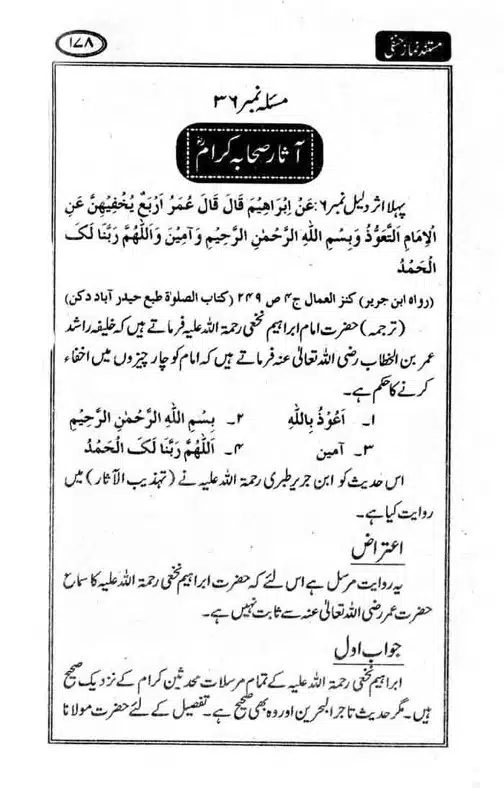 مستند نماز حنفی
۱۷۸
مسئلہ نمبر ۳۶
آثار صحابہ کرامؓ
پہلا اثر دلیل نمبر ۶: عَنْ اِبْرَاهِیْمَ قَالَ قَالَ عُمَرُ اَرْبَعٌ یُخْفِیْهِنَّ عَنِ
الْاِمَامِ التَّعَوُّذُ وَبِسْمِ اللهِ الرَّحْمٰنِ الرَّحِیْمِ وَآمِیْنَ وَاَللّٰهُمَّ رَبَّنَا لَکَ
الْحَمْدُ
(رواہ ابن جریر) کنز العمال ج ۴ ص ۲۴۹ (کتاب الصلوٰۃ طبع حیدر آباد دکن)
(ترجمہ) حضرت امام ابراہیم نخعی رحمۃ اللہ علیہ فرماتے ہیں کہ خلیفہ راشد
عمر بن الخطاب رضی اللہ تعالیٰ عنہ فرماتے ہیں کہ امام کو چار چیزوں میں اخفاء
کرنے کا حکم ہے۔
۱۔ اَعُوْذُ بِاللهِ ۲۔ بِسْمِ اللهِ الرَّحْمٰنِ الرَّحِیْمِ
۳۔ آمین ۴۔ اَللّٰهُمَّ رَبَّنَا لَکَ الْحَمْدُ
اس حدیث کو ابن جریر طبری رحمۃ اللہ علیہ نے (تہذیب الآثار) میں
روایت کیا ہے۔
اعتراض
یہ روایت مرسل ہے اس لئے کہ حضرت ابراہیم نخعی رحمۃ اللہ علیہ کا سماع
حضرت عمر رضی اللہ تعالیٰ عنہ سے ثابت نہیں ہے۔
جواب اول
ابراہیم نخعی رحمۃ اللہ علیہ کے تمام مرسلات محدثین کرام کے نزدیک صحیح
ہیں۔ مگر حدیث تاجر البحرین اور وہ بھی صحیح ہے۔ تفصیل کے لئے حضرت مولانا